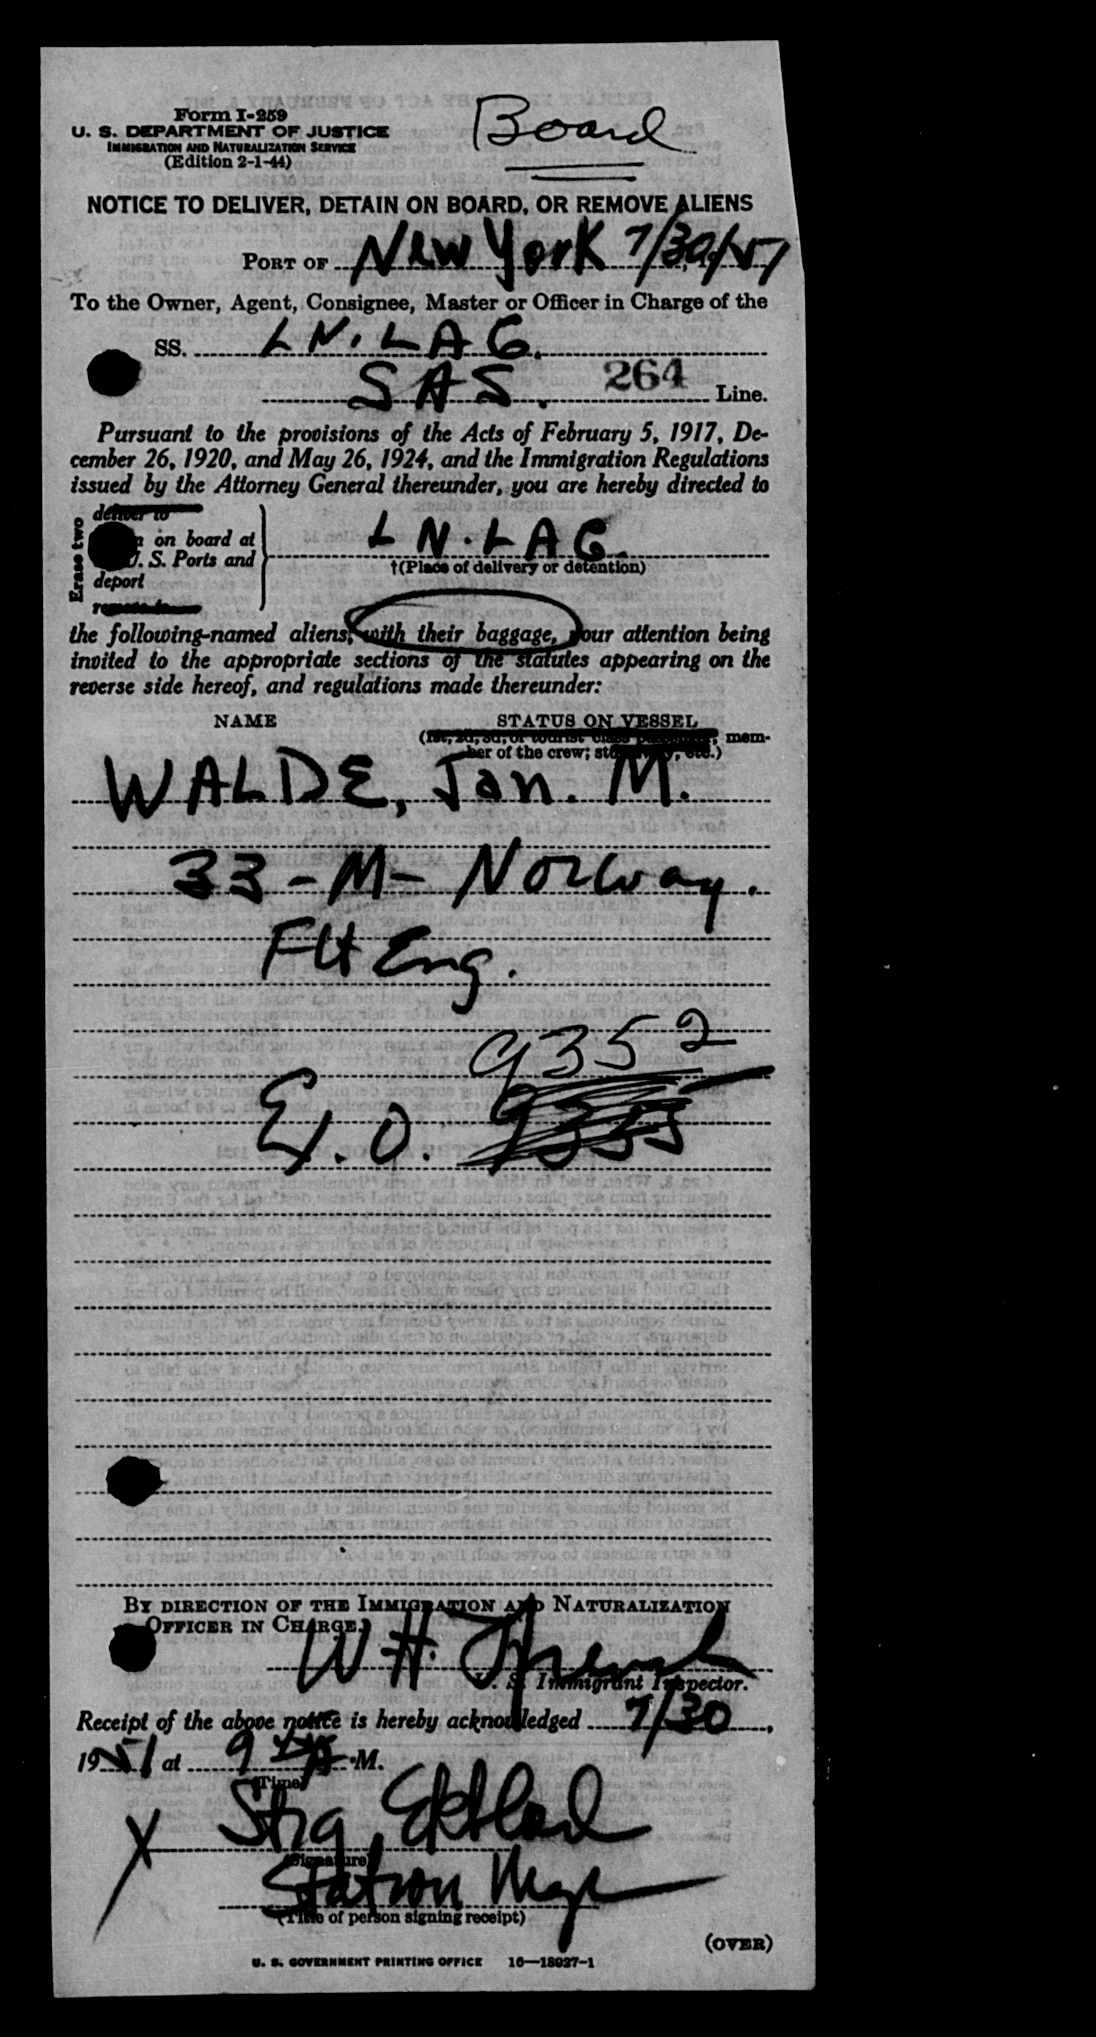 Form I-259
Board
U. S. DEPARTMENT OF JUSTICE
IMMIGRATION AND NATURALIZATION SERVICE
(Edition 2-1-44)
NOTICE TO DELIVER, DETAIN ON BOARD, OR REMOVE ALIENS
PORT OF New York 7/30/51
To the Owner, Agent, Consignee, Master or Officer in Charge of the
SS. LN.LAG.
SAS. 264 Line.
Pursuant to the provisions of the Acts of February 5, 1917, De-
cember 26, 1920, and May 26, 1924, and the Immigration Regulations
issued by the Attorney General thereunder, you are hereby directed to
Erase two
deliver to
on board at LN.LAG.
U. S. Ports and †(Place of delivery or detention)
deport
remove to
the following-named aliens, with their baggage, your attention being
invited to the appropriate sections of the statutes appearing on the
reverse side hereof, and regulations made thereunder:
NAME STATUS ON VESSEL
(1st, 2d, 3d, or tourist class passenger, mem-
ber of the crew; stowaway, etc.)
WALDE, Jan. M.
33-M-Norway.
Flt Eng.
9352
E/. O. 9355
BY DIRECTION OF THE IMMIGRATION AND NATURALIZATION
OFFICER IN CHARGE.
W H.
U. S. Immigrant Inspector.
Receipt of the above notice is hereby acknowledged 7/30,
1951 at 9 M.
(Time)
X Stig Ekblad
(Signature)
Station Mgr
(Title of person signing receipt)
(OVER)
U. S. GOVERNMENT PRINTING OFFICE 16—18027-1